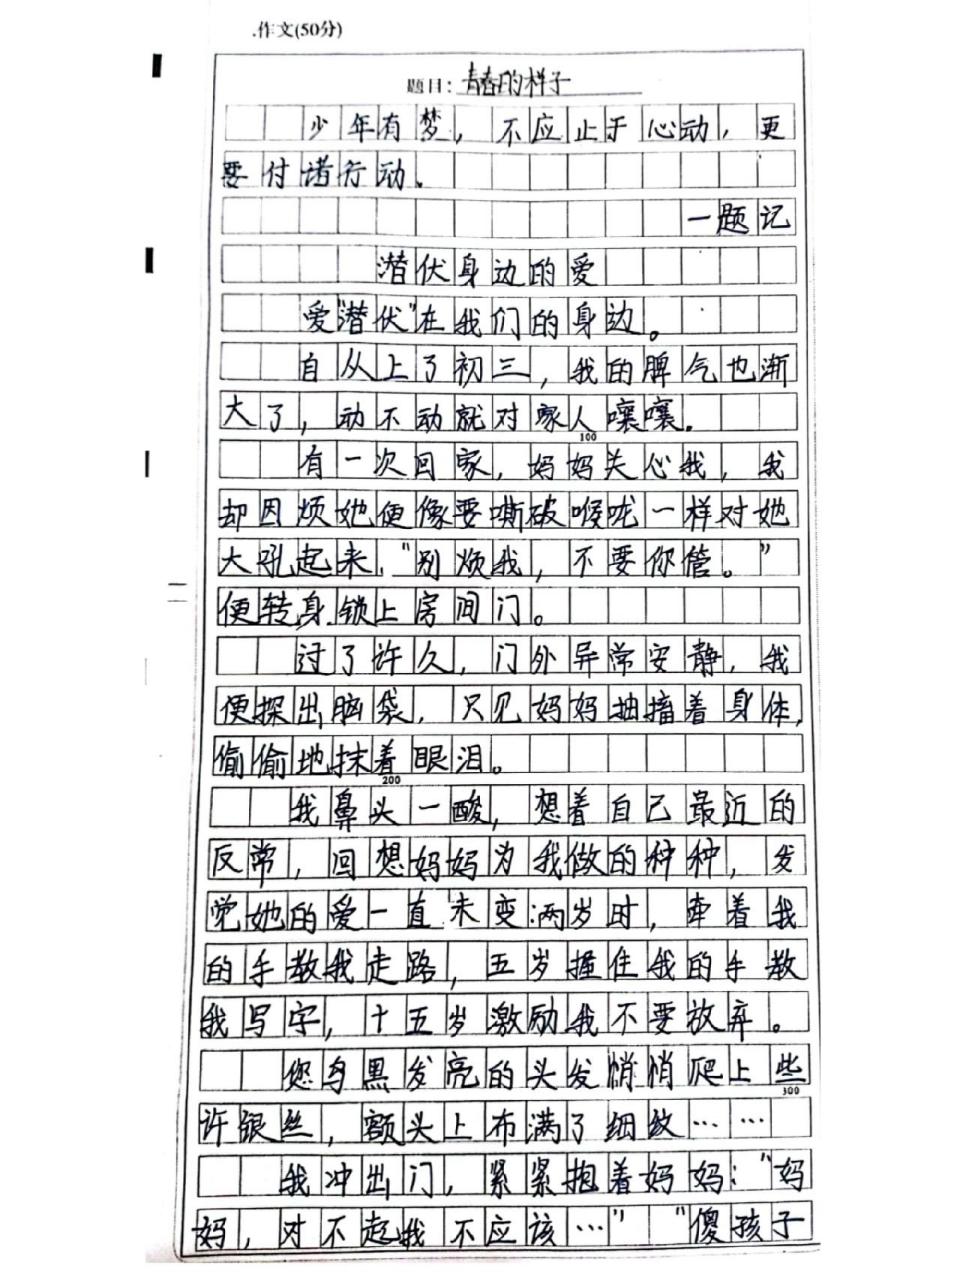 .作文(50分)
题目：青春的样子
少年有梦，不应止于心动，更
要付诸行动。
一题记
潜伏身边的爱
爱"潜伏"在我们的身边。
自从上了初三，我的脾气也渐
大了，动不动就对家人嚷嚷。
100
有一次回家，妈妈关心我，我
却因烦她便像要嘶破喉咙一样对她
大吼起来，"别烦我，不要你管。"
便转身锁上房间门。
过了许久，门外异常安静，我
便探出脑袋，只见妈妈抽搐着身体，
偷偷地抹着眼泪。
200
我鼻头一酸，想着自己最近的
反常，回想妈妈为我做的种种，发
觉她的爱一直未变：两岁时，牵着我
的手教我走路，五岁握住我的手教
我写字，十五岁激励我不要放弃。
您乌黑发亮的头发悄悄爬上些
300
许银丝，额头上布满了细纹……
我冲出门，紧紧抱着妈妈："妈
妈，对不起我不应该…""傻孩子